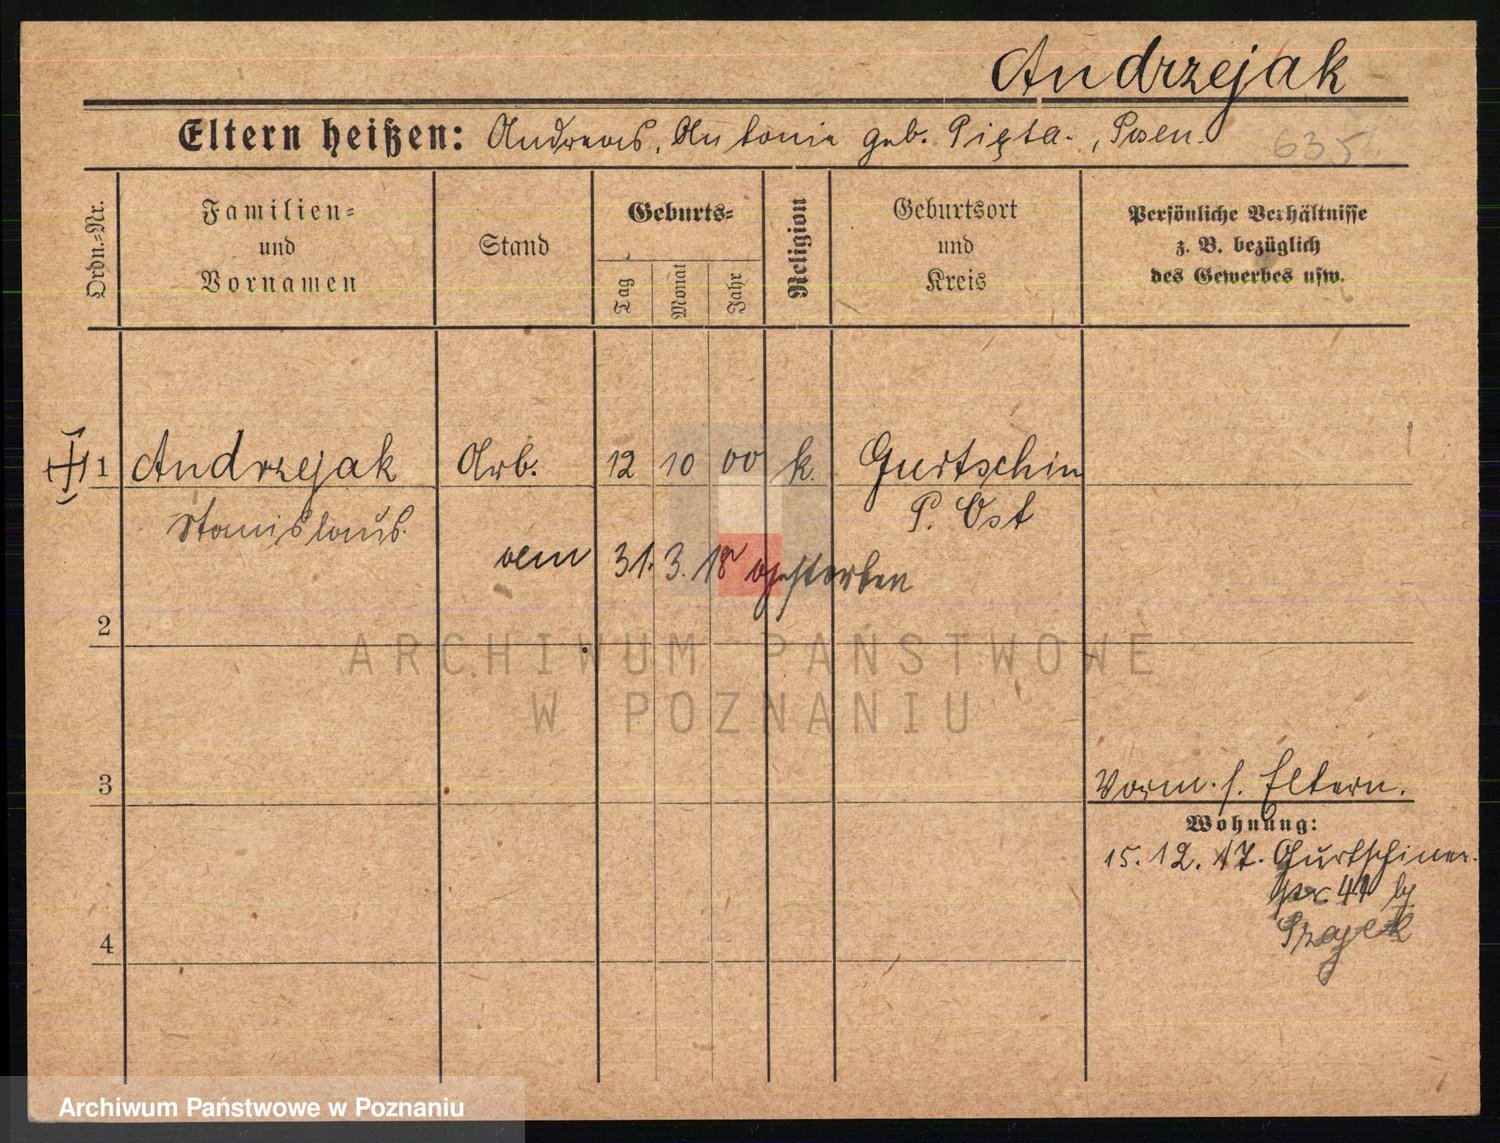 Andrzejak
Eltern heißen: Andreas, Antonie geb. Pięta., Posen.
635
Ordn.=Nr.
Familien=
und
Vornamen
Stand
Geburts=
Tag
Monat
Jahr
Religion
Geburtsort
und
Kreis
Persönliche Verhältnisse
z. B. bezüglich
des Gewerbes usw.
1 Andrzejak Arb. 12 10 00 k. Gurtschin
Stanislaus. P. Ost
31. 3. 18 gestorben
2
ARCHIWUM PAŃSTWOWE
W POZNANIU
3
Vorm. s. Eltern.
Wohnung:
15. 12. 17. Gurtschiner
41
4
Archiwum Państwowe w Poznaniu